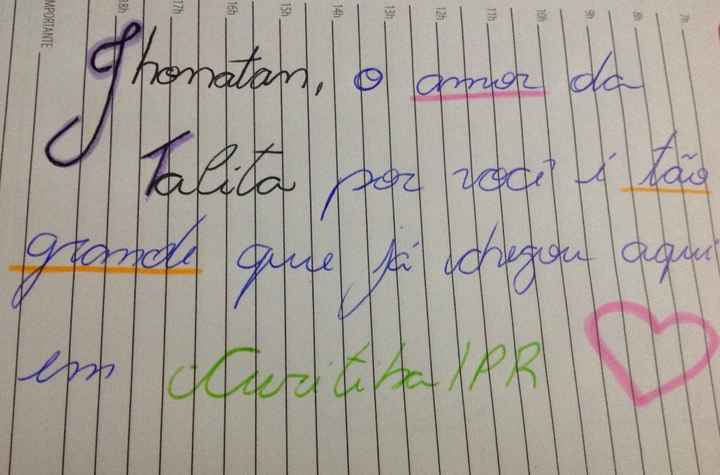 IMPORTANTE 18h 17h 16h 15h 14h 13h 12h 11h 10h 9h 8h 7h
Jhonatan, o amor da
Talita por você é tão
grande que já chegou aqui
em Curitiba/PR